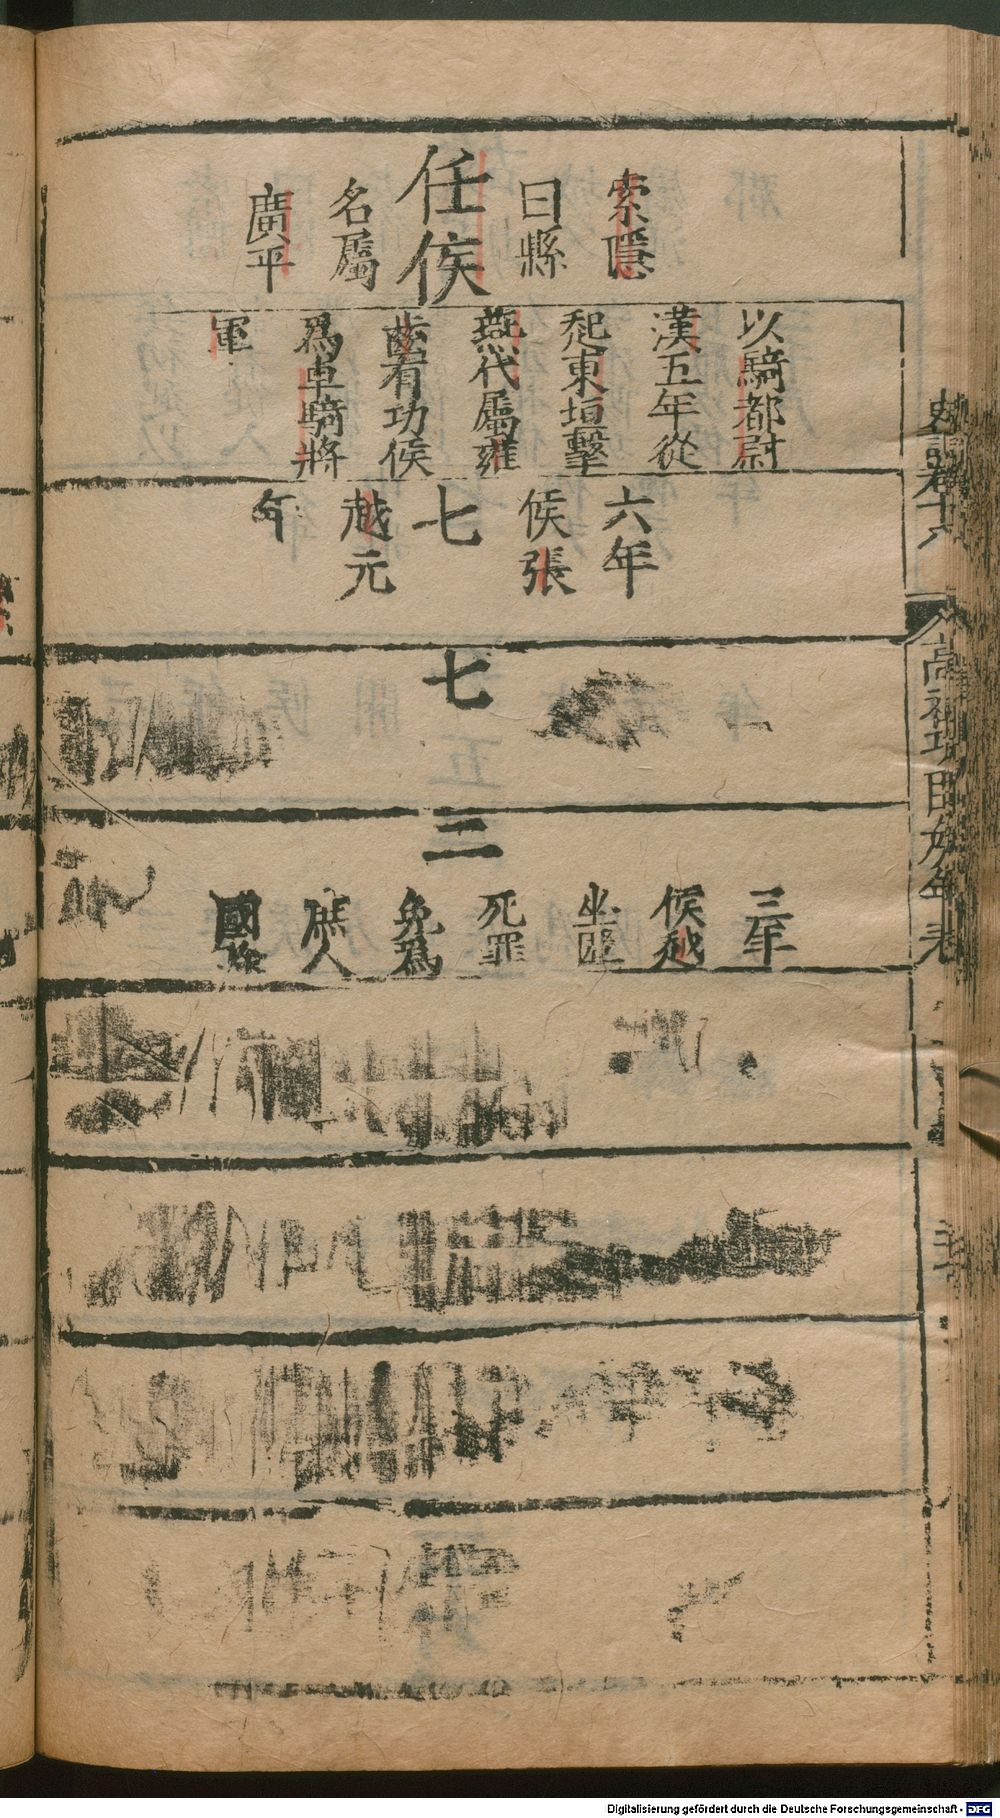 索隱
曰縣
任侯
名屬
廣平
以騎都尉
漢五年從
起東垣擊
燕代屬雍
齒有功侯
爲車騎將
軍
六年
侯張
七
越元
年
七
三
三年
侯越
坐匿
死罪
免爲
庶人
國除
高祖功臣年表
Digitalisierung gefördert durch die Deutsche Forschungsgemeinschaft - DFG